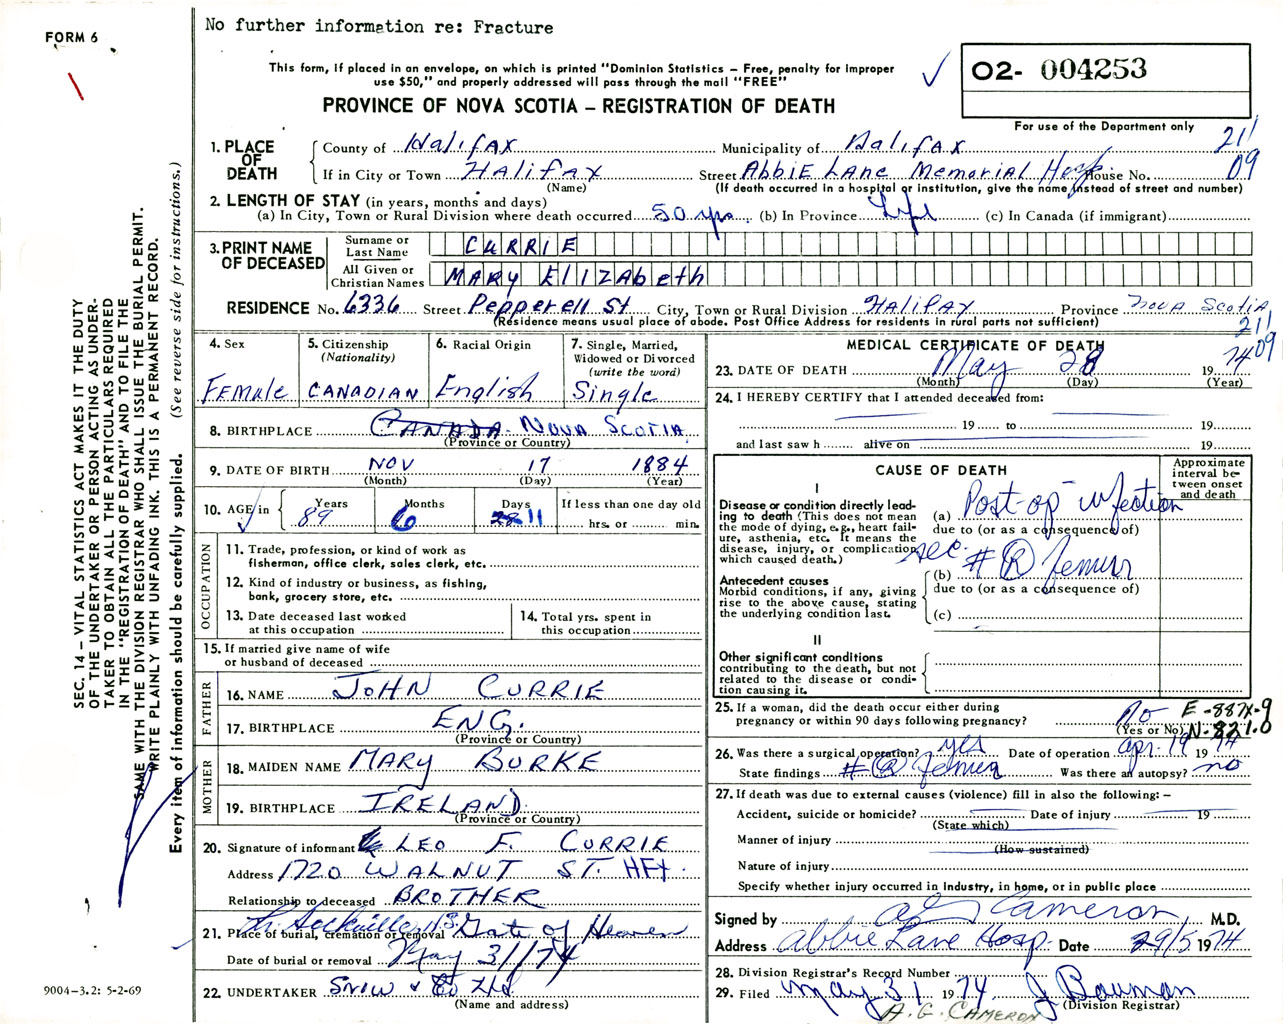 FORM 6
No further information re: Fracture
This form, if placed in an envelope, on which is printed "Dominion Statistics – Free, penalty for improper
use $50," and properly addressed will pass through the mail "FREE"
PROVINCE OF NOVA SCOTIA – REGISTRATION OF DEATH
02- 004253
For use of the Department only
211
09
1. PLACE OF DEATH
County of Halifax Municipality of Halifax
If in City or Town Halifax Street Abbie Lane Memorial Hosp. House No.
(Name) (If death occurred in a hospital or institution, give the name instead of street and number)
2. LENGTH OF STAY (in years, months and days)
(a) In City, Town or Rural Division where death occurred 50 yrs. (b) In Province Life (c) In Canada (if immigrant)
3. PRINT NAME OF DECEASED
Surname or Last Name CURRIE
All Given or Christian Names MARY ElIZAbeth
RESIDENCE No. 6336 Street Pepperell St City, Town or Rural Division Halifax Province Nova Scotia
(Residence means usual place of abode. Post Office Address for residents in rural parts not sufficient)
211
09
4. Sex
Female
5. Citizenship
(Nationality)
CANADIAN
6. Racial Origin
English
7. Single, Married,
Widowed or Divorced
(write the word)
Single
8. BIRTHPLACE CANADA. NOVA SCOTIA
(Province or Country)
9. DATE OF BIRTH NOV 17 1884
(Month) (Day) (Year)
10. AGE in Years Months Days If less than one day old
89 6 28 11 hrs. or min.
OCCUPATION
11. Trade, profession, or kind of work as
fisherman, office clerk, sales clerk, etc.
12. Kind of industry or business, as fishing,
bank, grocery store, etc.
13. Date deceased last worked
at this occupation
14. Total yrs. spent in
this occupation
15. If married give name of wife
or husband of deceased
FATHER
16. NAME JOHN CURRIE
17. BIRTHPLACE ENG.
(Province or Country)
MOTHER
18. MAIDEN NAME MARY BURKE
19. BIRTHPLACE IRELAND
(Province or Country)
20. Signature of informant LEO F. CURRIE
Address 1720 WALNUT ST. HFX.
Relationship to deceased BROTHER
21. Place of burial, cremation or removal Sackville Gate of Heaven
Date of burial or removal May 31/74
22. UNDERTAKER SNOW & Co Ltd.
(Name and address)
MEDICAL CERTIFICATE OF DEATH
23. DATE OF DEATH May 28 1974
(Month) (Day) (Year)
24. I HEREBY CERTIFY that I attended deceased from:
19 to 19
and last saw h alive on 19
CAUSE OF DEATH
Approximate
interval be-
tween onset
and death
I
Disease or condition directly lead-
ing to death (This does not mean
the mode of dying, e.g., heart fail-
ure, asthenia, etc. It means the
disease, injury, or complication
which caused death.)
(a) Post op infection
due to (or as a consequence of)
sec.
Antecedent causes
Morbid conditions, if any, giving
rise to the above cause, stating
the underlying condition last.
(b) # (R) femur
due to (or as a consequence of)
(c)
II
Other significant conditions
contributing to the death, but not
related to the disease or condi-
tion causing it.
25. If a woman, did the death occur either during
pregnancy or within 90 days following pregnancy? No
(Yes or No)
E-887X-9
N-821.0
26. Was there a surgical operation? yes Date of operation Apr. 19 1974
State findings # (R) femur Was there an autopsy? no
27. If death was due to external causes (violence) fill in also the following: –
Accident, suicide or homicide? Date of injury 19
(State which)
Manner of injury
(How sustained)
Nature of injury
Specify whether injury occurred in industry, in home, or in public place
Signed by Cameron, M.D.
Address Abbie Lane Hosp. Date 29/5 1974
28. Division Registrar's Record Number
29. Filed May 31 1974 J Bauman
(Division Registrar)
A. G. CAMERON
SEC. 14 – VITAL STATISTICS ACT MAKES IT THE DUTY
OF THE UNDERTAKER OR PERSON ACTING AS UNDER-
TAKER TO OBTAIN ALL THE PARTICULARS REQUIRED
IN THE "REGISTRATION OF DEATH" AND TO FILE THE
SAME WITH THE DIVISION REGISTRAR WHO SHALL ISSUE THE BURIAL PERMIT.
WRITE PLAINLY WITH UNFADING INK. THIS IS A PERMANENT RECORD.
Every item of information should be carefully supplied. (See reverse side for instructions.)
9004-3.2: 5-2-69